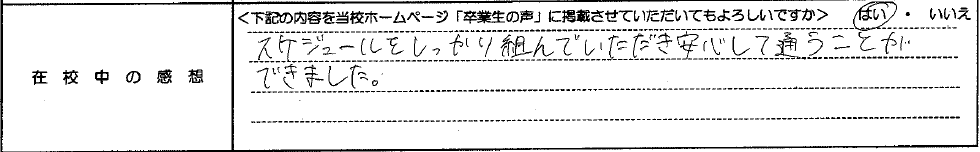 <下記の内容を当校ホームページ「卒業生の声」に掲載させていただいてもよろしいですか> はい ・ いいえ
在校中の感想
スケジュールをしっかり組んでいただき安心して通うことが
できました。